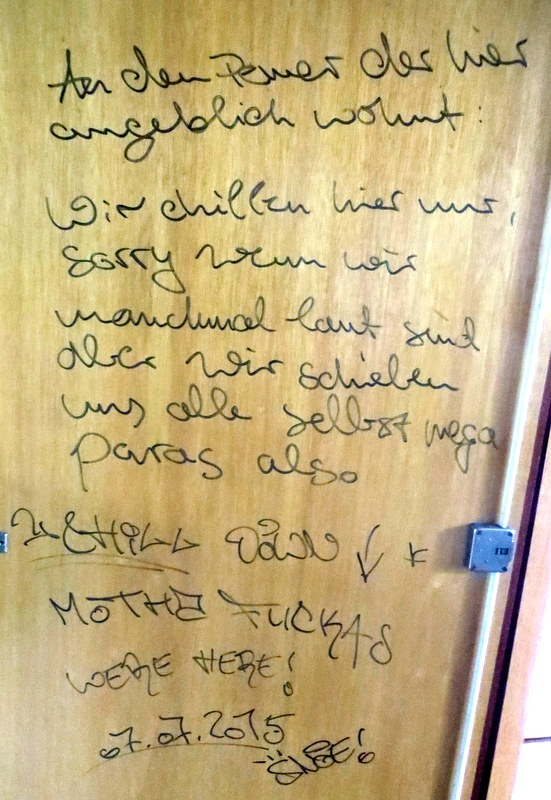 An den Penner der hier
angeblich wohnt:
Wir chillen hier nur,
sorry wenn wir
manchmal laut sind
aber wir schieben
uns alle selbst mega
paras also
CHILL DOWN
MOTHE FUCKAS
WERE HERE!
07.07.2015